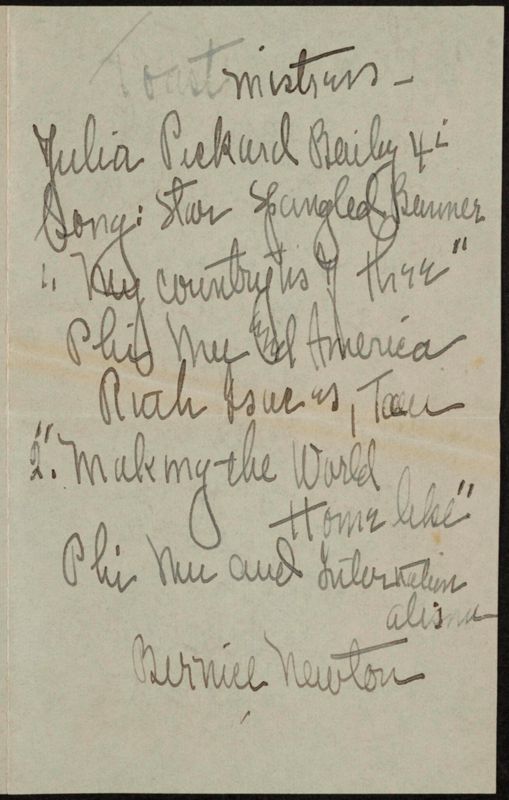 Toastmistress –
Julia Pickard Baily
Song: Star Spangled Banner
1. "My country tis of thee"
Phi Mu and America
Ruth Isaacs, Tau
2. "Making the World
Home like"
Phi Mu and Internation
alism
Bernice Newton